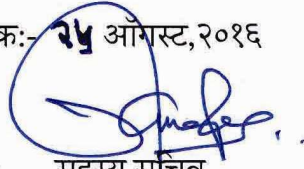 क:- २५ ऑगस्ट,२०१६
सदस्य सचिव